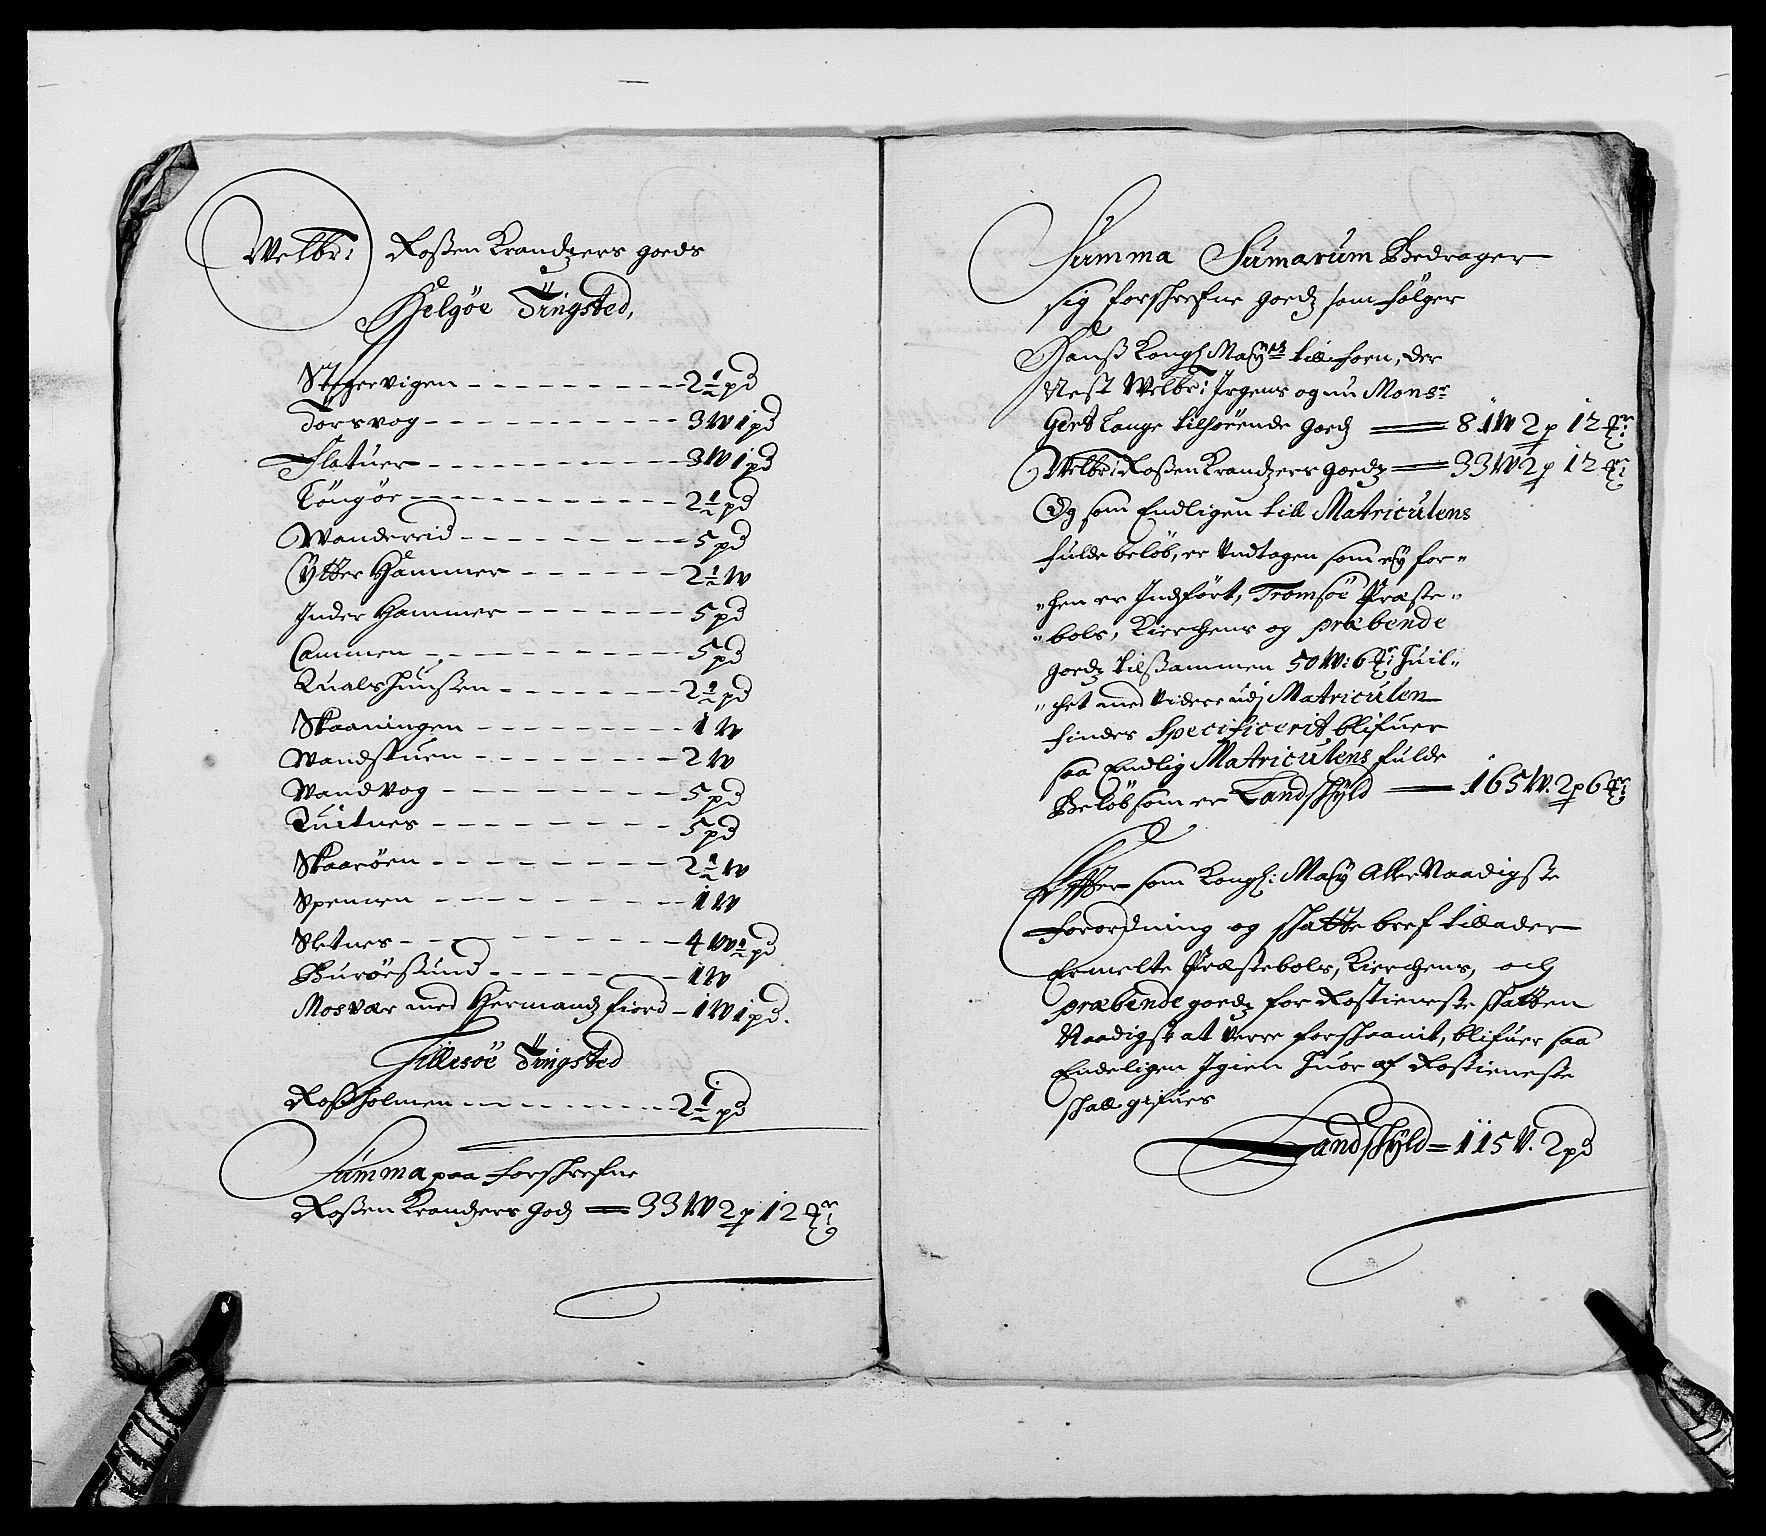 Welbr: Roßen Krandzers goeds
Helgöe Tingsted,
Skgervigen - - - - - - - - - 2½ pd
Torsvog - - - - - - - - - 3 W 1 pd
Flatuer - - - - - - - - - 3 W 1 pd
Löngöe - - - - - - - - - 2½ pd
Wandereid - - - - - - - - - 5 pd
Ytter Hammer - - - - - - 2½ W
Inder Hammer - - - - - - 5 pd
Cammen - - - - - - - - - 5 pd
Qualshuußen - - - - - - - 2½ pd
Skaaningen - - - - - - - - 1 W
Wandstuen - - - - - - - - 2 W
Wandvog - - - - - - - - - 5 pd
Quitnes - - - - - - - - - 5 pd
Skaarøen - - - - - - - - - 2½ W
Spennen - - - - - - - - - 1 W
Sletnes - - - - - - - - - 4 W ½ pd
Burøesund - - - - - - - 1 W
Mosvær med Hermandz fiord - 1 W 1 pd.
Tillesöe Tingsted
Roßholmen - - - - - - - - 2½ pd
Summa paa forschrefne
Roßen Krandzers godz = 33 W 2 p 12 Mr:
Summa Sumarum Bedrager
sig forschrefne goedz som følger
Hanß Kongl Mayts till forn, der
Nest Welbr: Irgens og nu Monsr
Gert Lange tilhørende goedz = 81 W 2 p 12 Mr:
Welbr: Roßen Krandzers goedz = 33 W 2 p 12 Mr:
Og som Endeligen till Matriculens
fulde beløb, er Undtagen som ey for-
-hen er Indført, Tromsöe Præste-
-bols, Kierchens og præbende
goedz tilsammen 50 W: 6 Mr: huil-
-chet med videre udj Matriculen
findes Specificerit blifuer
saa Endlig Matriculens fulde
Beløb som er Landschyld = 165 W. 2 p 6 Mr:
Effter som Kongl: May Alle Naadigste
forordning og schatte bref tillader
Ermelte Præstebols, Kierchens, och
præbende goedz for Rostieneste schatten
Naadigst at verre forschaanit, blifuer saa
Endeligen Igien huor af Rostieneste
schall gifues
Landschyld = 115 V. 2 pd